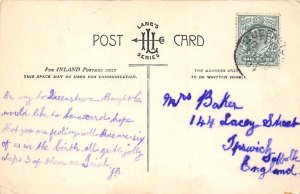 LANG'S
POST CARD
SERIES
FOR INLAND POSTAGE ONLY
THIS SPACE MAY BE USED FOR COMMUNICATION.
THE ADDRESS ONLY
TO BE WRITTEN HERE.
HALF PENNY
On way to Queenstown thought
would like to have card, hope
that you are feeling well there are six
of us in the birth, all quite jolly
chaps 3 of them are Irish
Mrs Baker
144 Lacey Street
Ipswich
Suffolk
England